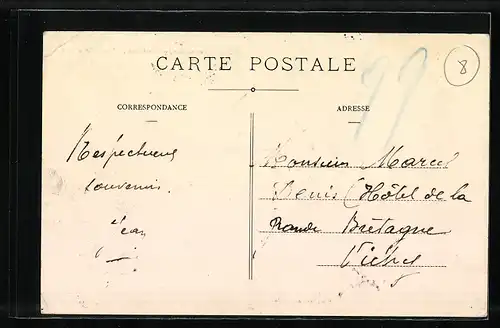 CARTE POSTALE
CORRESPONDANCE
ADRESSE
8
Respectueux
souvenirs.
Jean
Monsieur Marcel
Denis (Hôtel de la
Grande Bretagne
Vichy